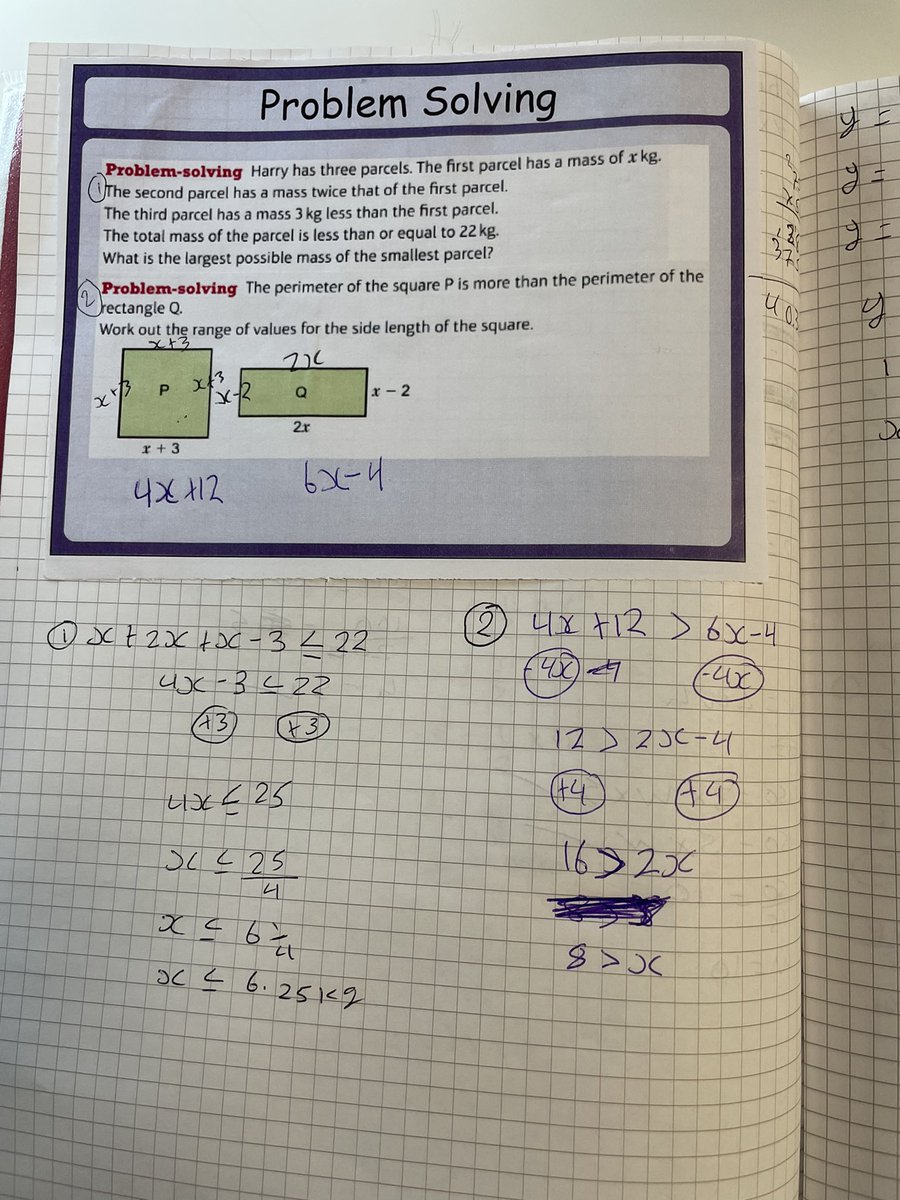 Problem Solving
Problem-solving Harry has three parcels. The first parcel has a mass of x kg.
① The second parcel has a mass twice that of the first parcel.
The third parcel has a mass 3 kg less than the first parcel.
The total mass of the parcel is less than or equal to 22 kg.
What is the largest possible mass of the smallest parcel?
② Problem-solving The perimeter of the square P is more than the perimeter of the
rectangle Q.
Work out the range of values for the side length of the square.
x+3
2x
x+3 P x+3 x-2 Q x − 2
2x
x + 3
4x+12 6x-4
① x+2x+x-3 ≤ 22
4x-3 ≤ 22
+3 +3
4x ≤ 25
x ≤ 25/4
x ≤ 6 1/4
x ≤ 6.25kg
② 4x+12 > 6x-4
-4x -4x
12 > 2x-4
+4 +4
16 > 2x
8 > x
y =
y =
y =
y